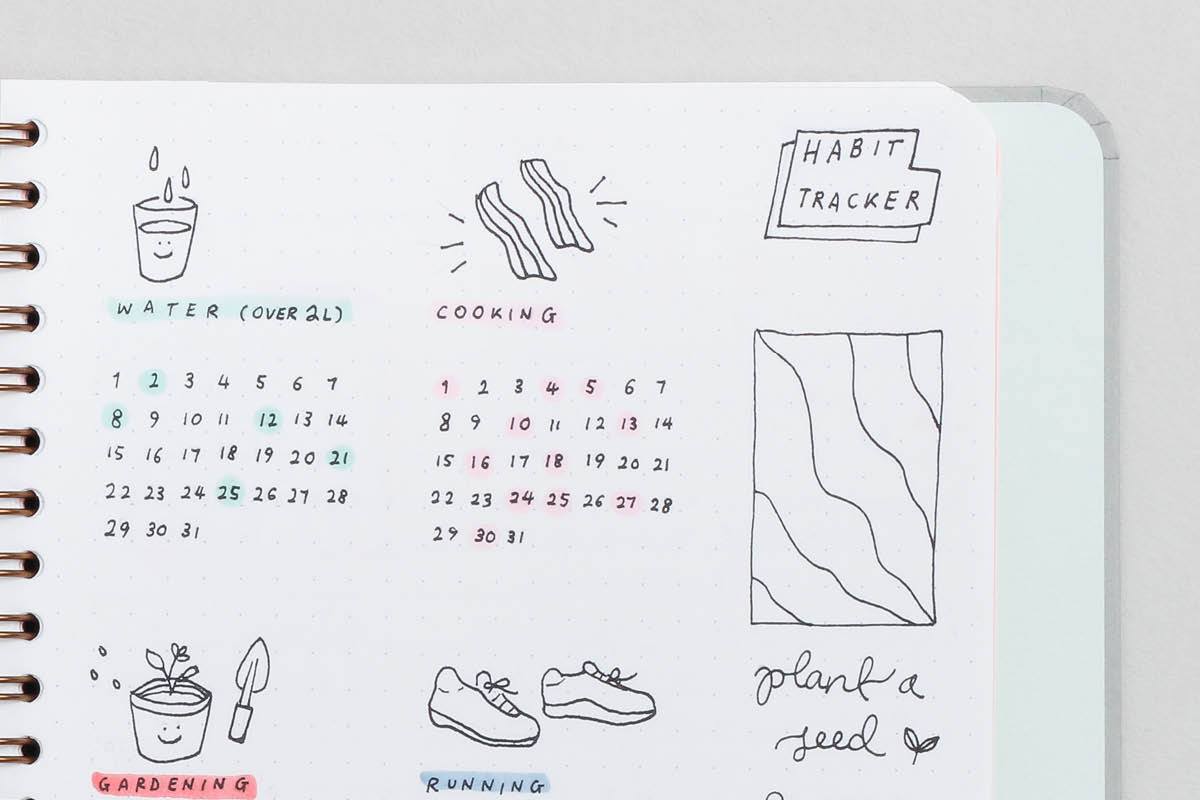 HABIT
TRACKER
WATER (OVER 2L)
1 2 3 4 5 6 7
8 9 10 11 12 13 14
15 16 17 18 19 20 21
22 23 24 25 26 27 28
29 30 31
COOKING
1 2 3 4 5 6 7
8 9 10 11 12 13 14
15 16 17 18 19 20 21
22 23 24 25 26 27 28
29 30 31
plant a
seed
GARDENING
RUNNING